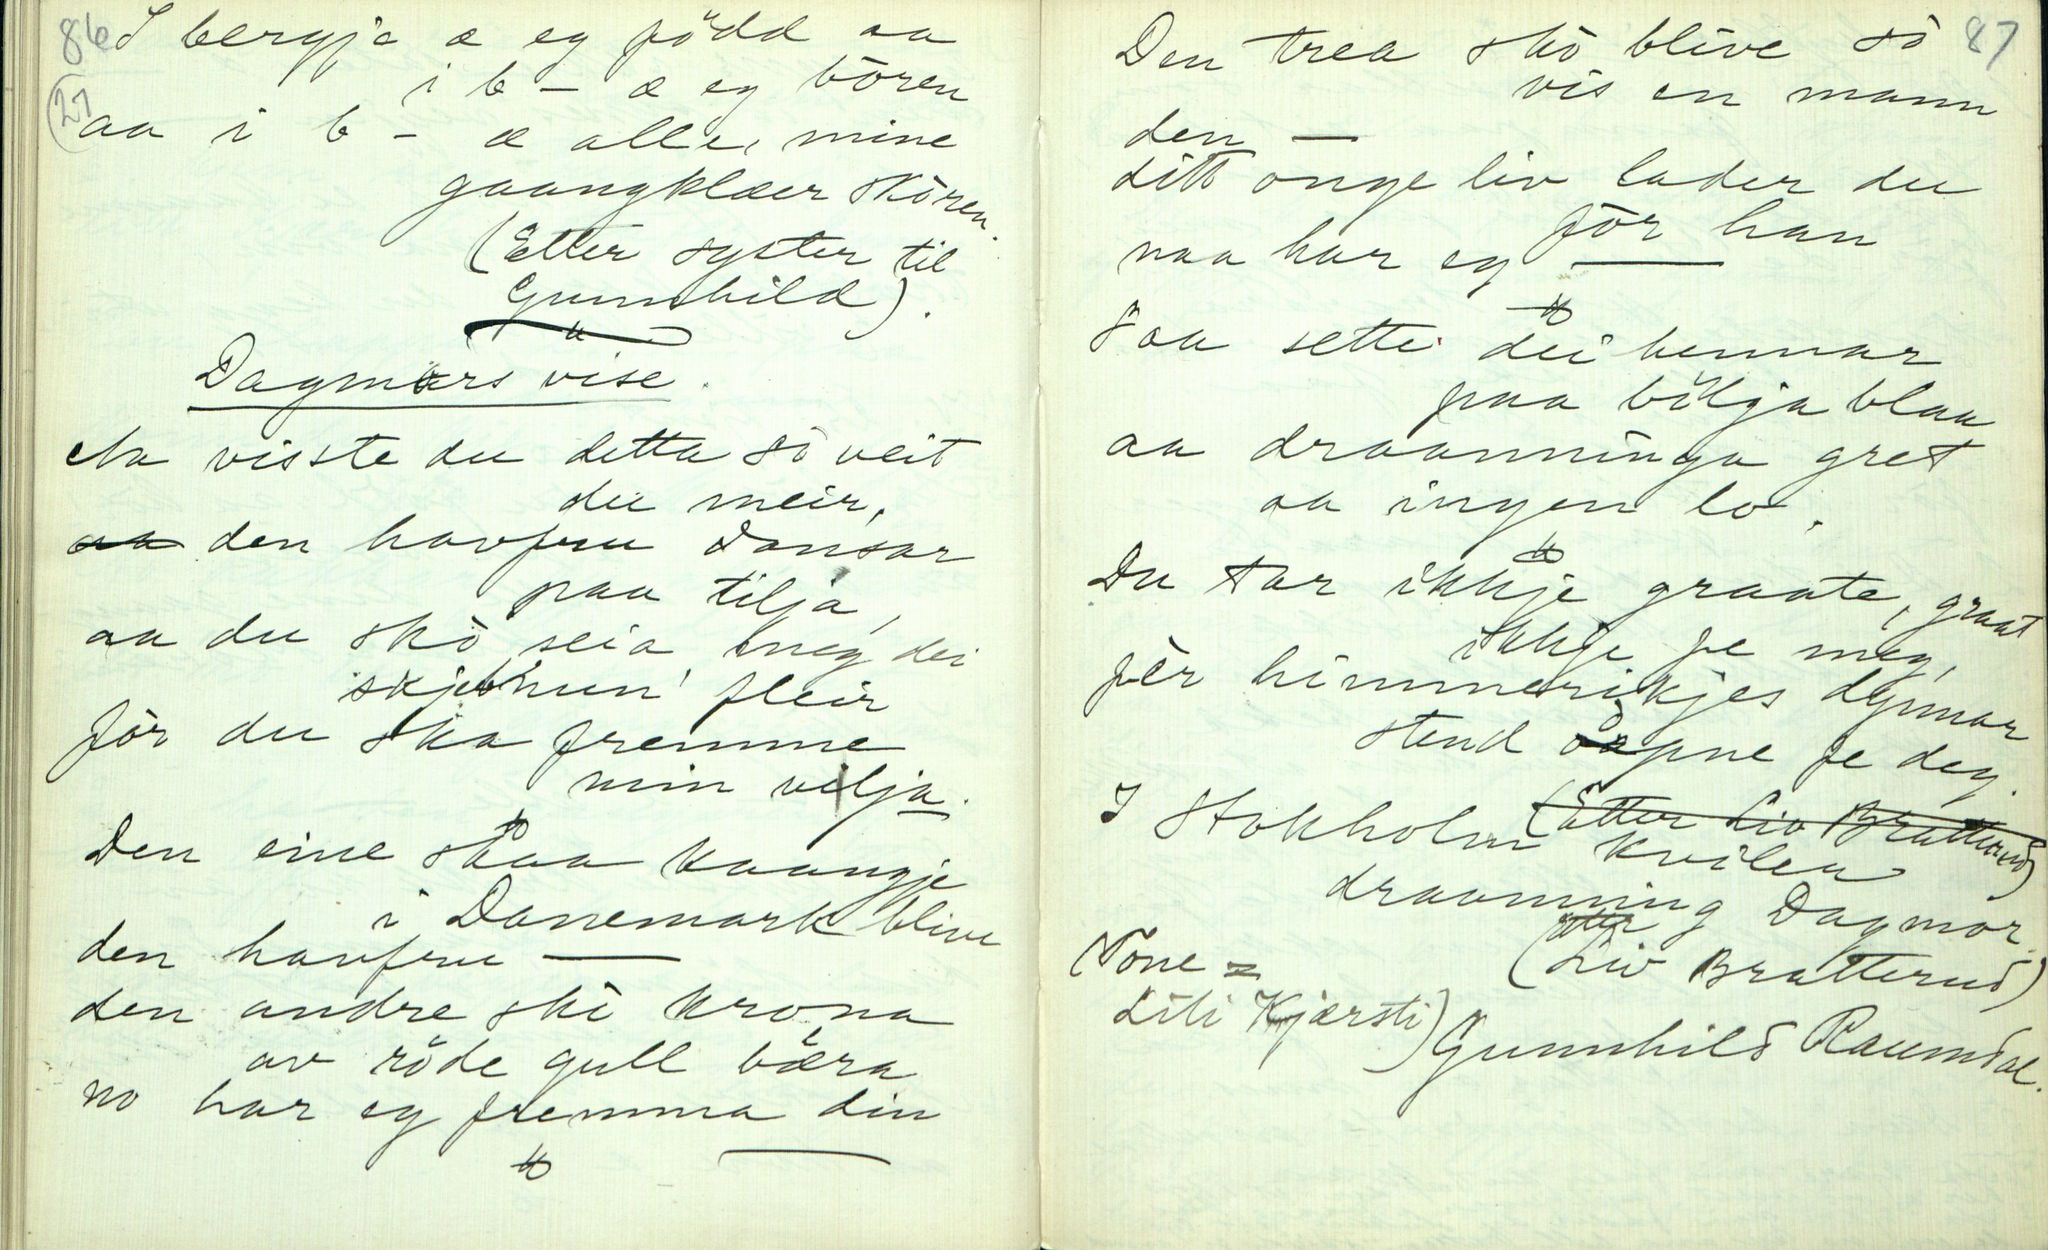 86 I bergje æ eg född aa
i b – æ eg bören
(27) aa i b – æ alle mine
gaangklær skören.
(Etter syster til
Gunnhild).
Dagmars vise.
Aa visste du detta so veit
du meir,
aa den havfru dansar
paa tilja,
aa du skò seia meg dei
skjebnun' fleir
för du ska fremme
min vilja.
Den eine skaa kaangje
i Danemark blive
den havfru —
den andre ski krona
av röde gull bæra
no har eg fremma din —
87
Den trea skò blive so
vis en mann
den —
ditt onge liv lader du
för han
naa har eg —
Saa sette dei hennar
paa bölgja blaa
aa draanninga gret
aa ingen lo.
Du tar ikkje graate, graat
ikkje fe meg,
fèr himmerikjes dynnar
stend opne fe deg.
(Etter Liv Bratterud)
I Stokholm kvilea
draanning Dagmor.
(Liv Bratterud)
(Tone =
Liti Kjærsti)
Gunnhild Raumdal.